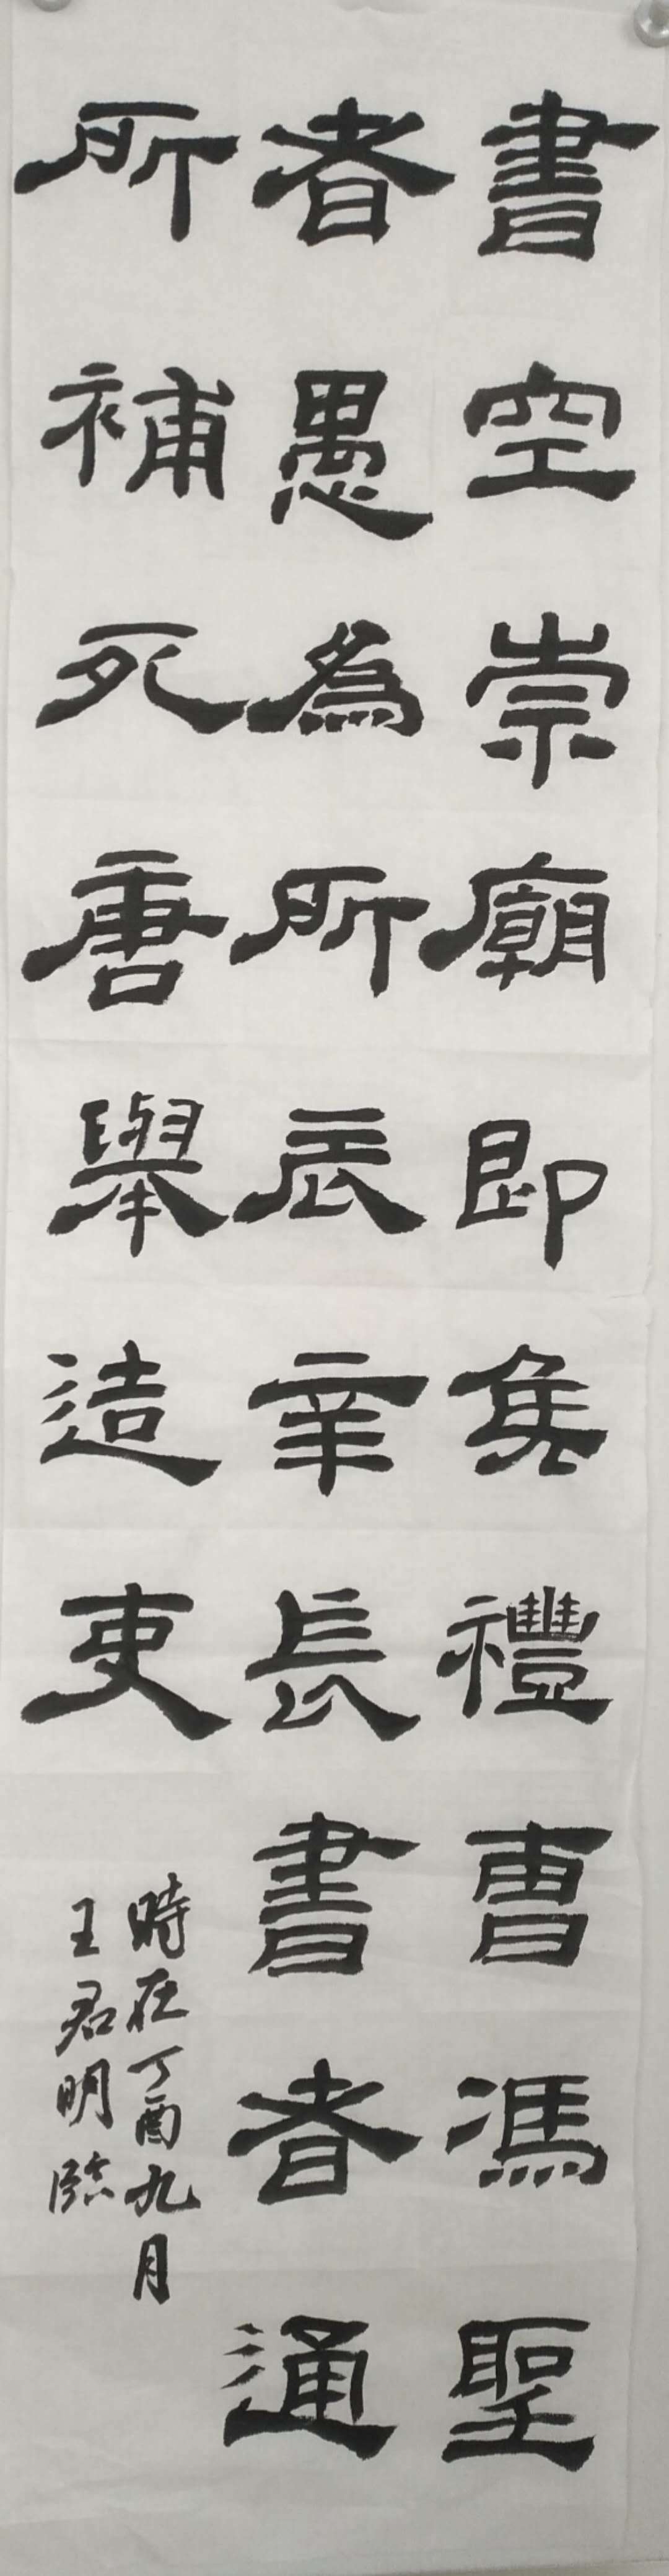 書空崇廟即隻禮曹馮聖
者愚為所辰辛長書者通
所補死唐舉造吏
時在丁酉九月
王君明臨